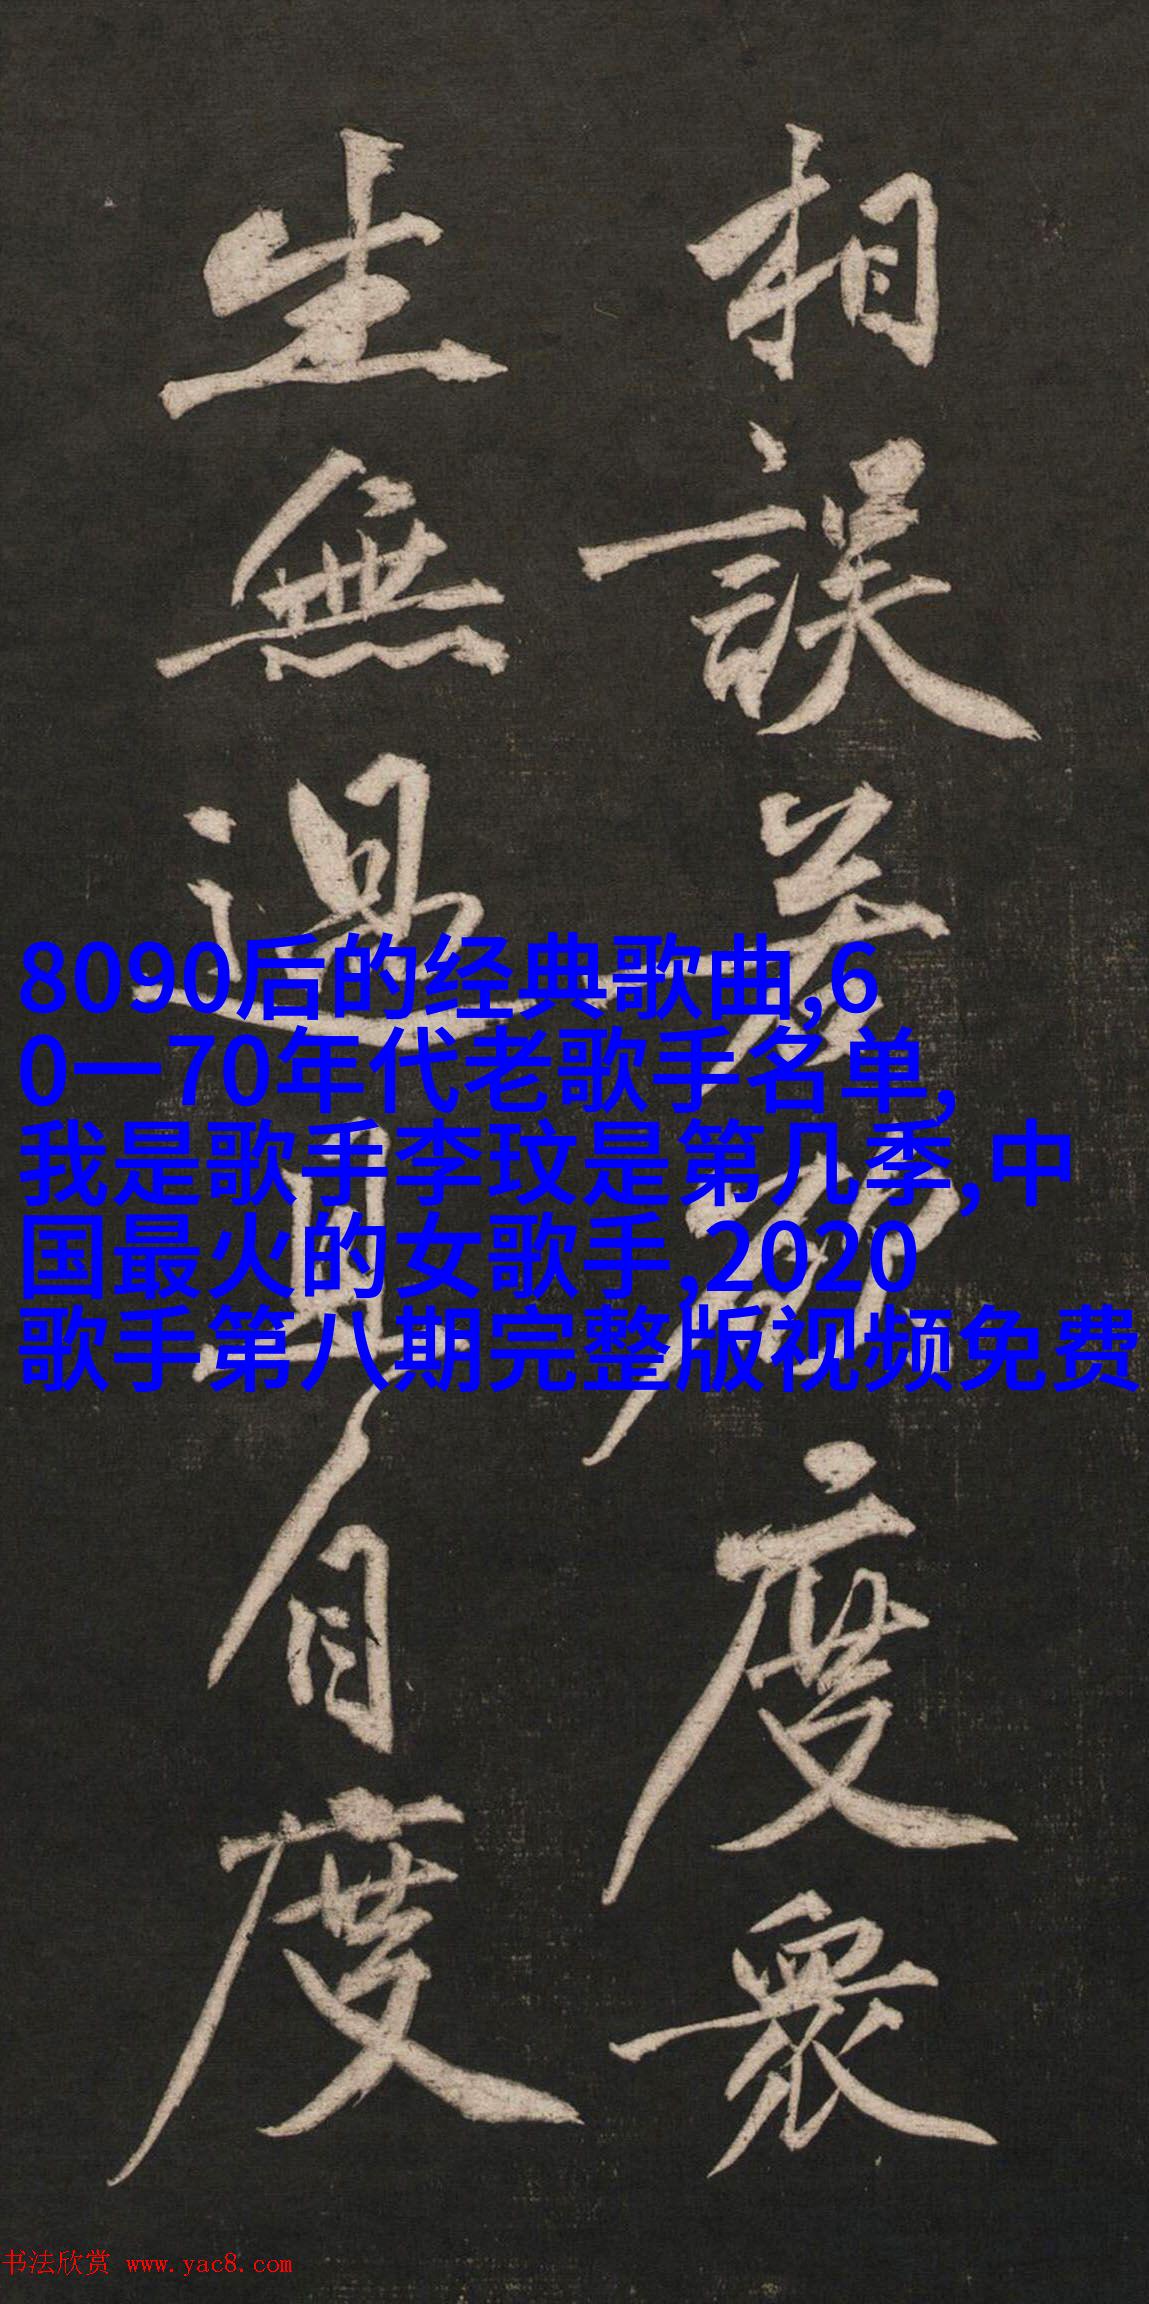 相誤度衆
生無過且自度
8090后的经典歌曲,6
0一70年代老歌手名单,
我是歌手李玟是第几季,中
国最火的女歌手,2020
歌手第八期完整版视频免费
书法欣赏 www.yac8.com